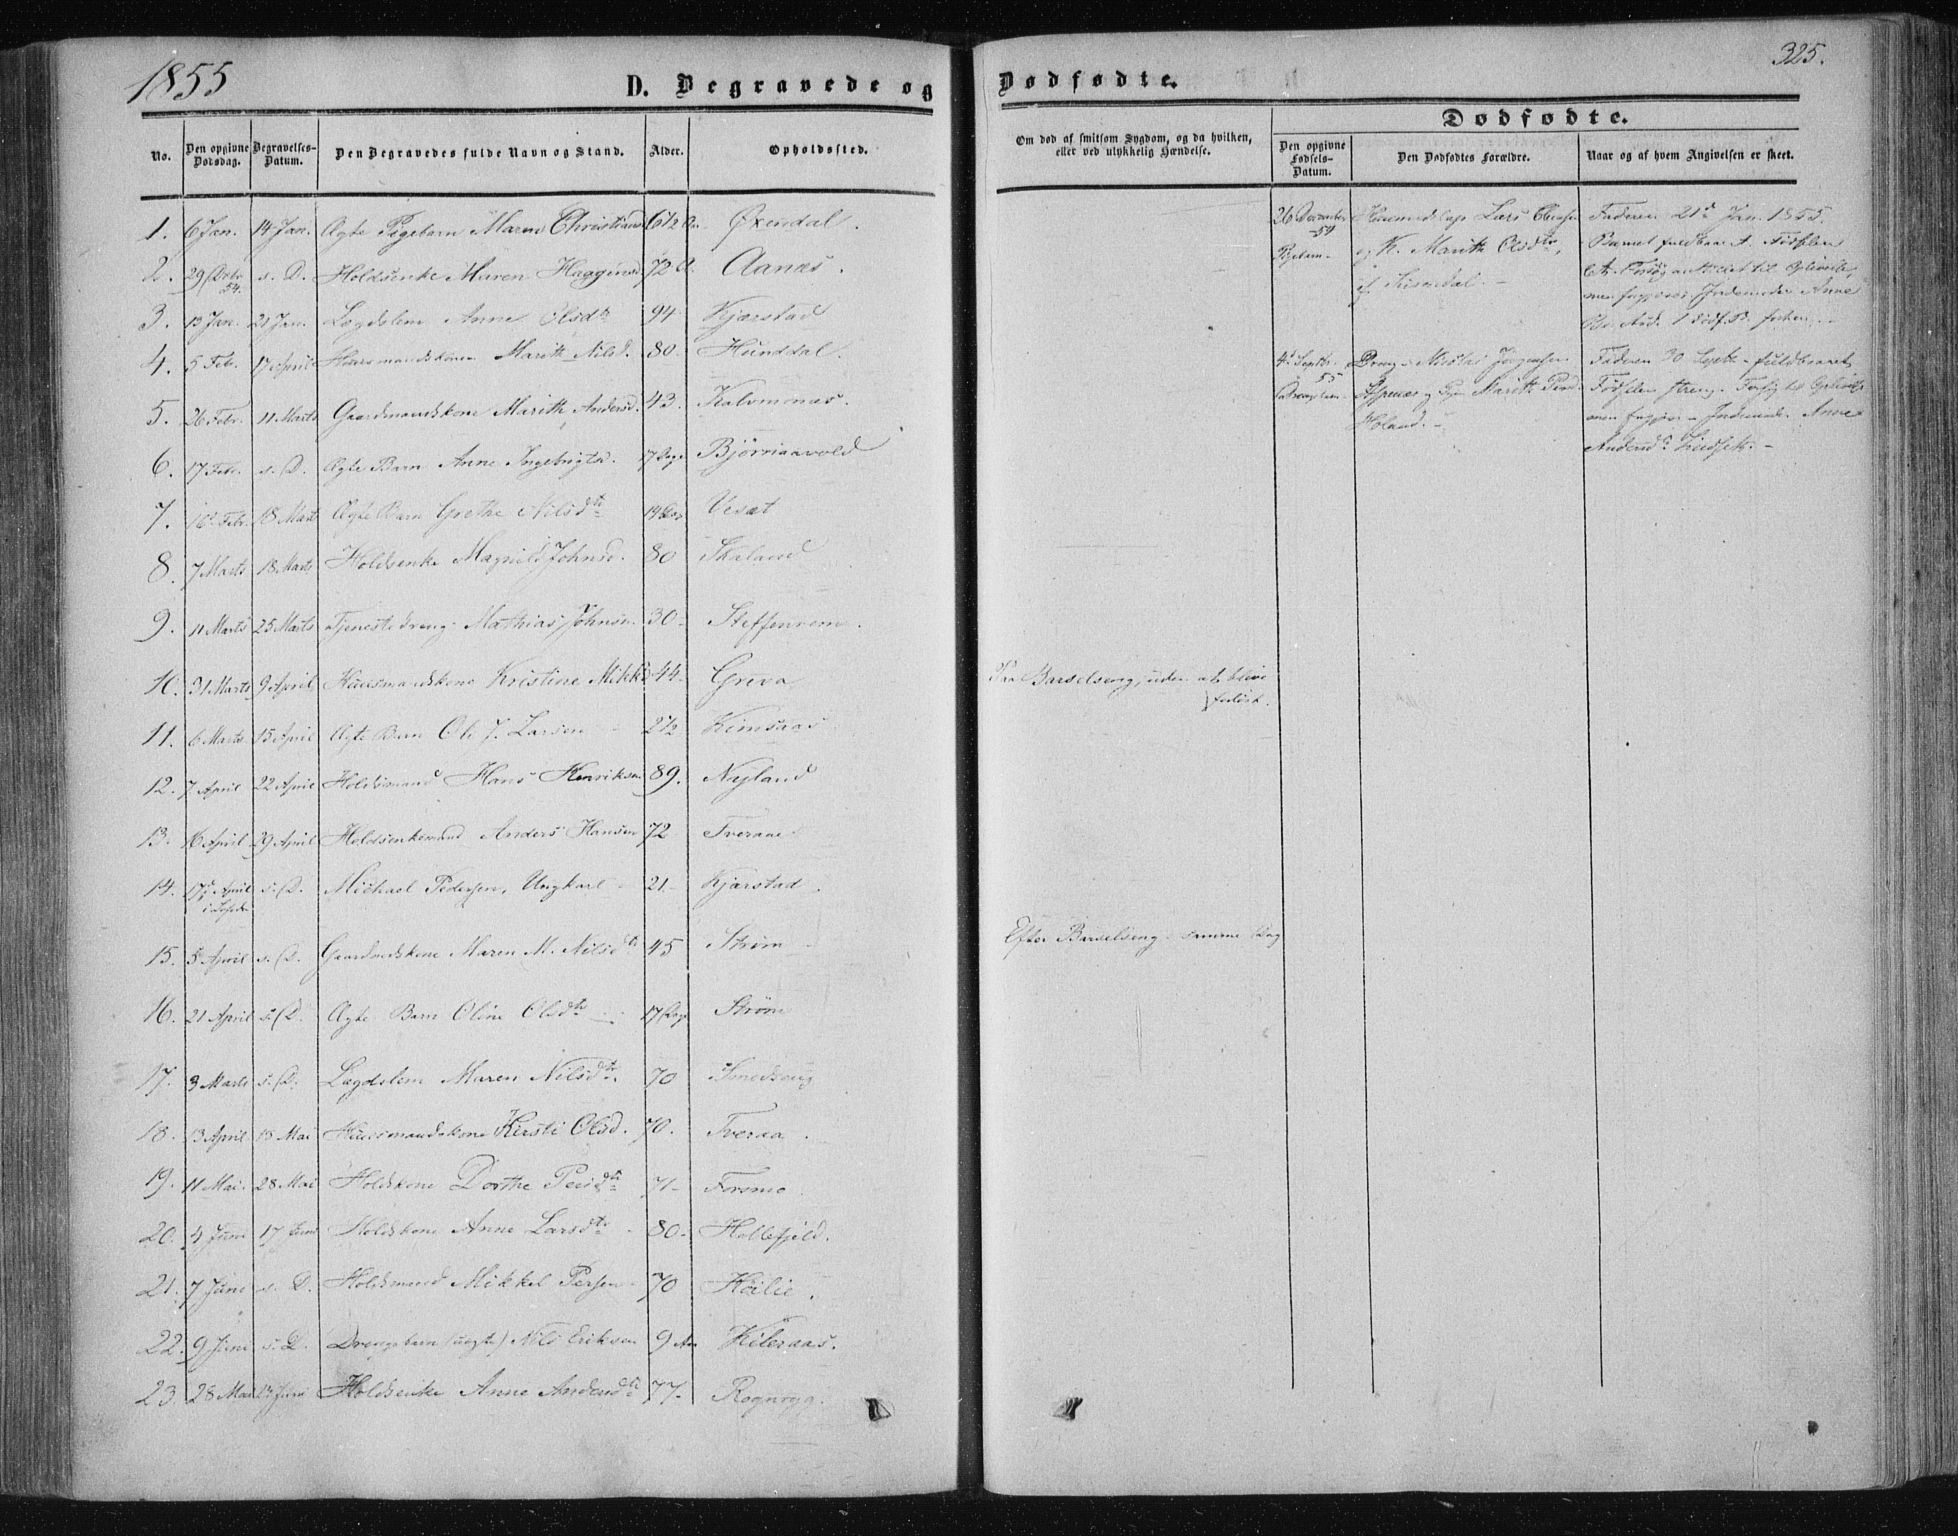 1855
D. Begravede og
No. Den opgivne Dødsdag. Begravelses-Datum. Den Begravedes fulde Navn og Stand. Alder. Opholdssted.
1. 6 Jan. 14 Jan. Ægte Pigebarn Maren Christians 6½ Øxendal.
2. 29 54. s. D. Holdsenke Maren Haggens 72 Aanæs.
3. 13 Jan. 21 Jan. Lægdslem Anne Olsdtr 94 Kjærstad
4. 5 Febr. 17 April Huusmandskone Marith Nilsd. 80. Hunddal.
5. 26 Febr. 11 Marts Gaardmandskone Marith Andersd. 43. Kalvmonæs.
6. 17 Febr. s. D. Ægte Barn Anne Ingebrigtsd. 17 Dage Bjørnaavold
7. 16 Febr. 18 Marts Ægte Barn Grethe Nilsdtr 14 Dag Vesæt
8. 7 Marts 18 Marts Holdsenke Magnild Johnsd. 80 Skaland
9. 11 Marts 25 Marts Tjenestedreng Mathias Johnsen 30 Steffenrem.
10. 31 Marts 9 April Huusmandskone Kristine Mikk 44. Greva
11. 6 Marts 15 April Ægte Barn Ole J. Larsen 2½ Kimsaas
12. 7 April 22 April Holdsmand Hans Henriksen 89. Nyland
13. 16 April 29 April Holdsenkemand Anders Hansen 72 Tveraae
14. 17 April s. D. Michael Pedersen, Ungkarl 21 Kjærstad.
15. 5 April s. D. Gaardmdskone Maren M. Nilsdtr 45 Strøm
16. 21 April s. D. Ægte Barn Oline Olsdtr 17 Dage Strøm
17. 3 Marts s. D. Lægdslem Maren Nilsdtr. 70 Smedseng
18. 13 April 18 Mai Huusmandskone Kirsti Olsd. 70. Tveraa.
19. 11 Mai. 28 Mai Holdskone Dorthe Peisdtr 71 Forsmo
20. 4 Juni 17 Juni Holdskone Anne Larsdtr 80. Hallefjeld.
21. 7 Juni s. D. Holdsmand Mikkel Persen 70 Høilie.
22. 9 Juni s. D. Drengebarn (uægte) Nils Eriksen 9 Kileraas.
23. 28 Mai 23 Juni Holdsenke Anne Andersdtr 77. Rognryg.
325.
Dødfødte.
Om død af smitsom Sygdom, og da hvilken, eller ved ulykkelig Hændelse.
Dødfødte.
Den opgivne Fødsels-Datum. Den Dødfødtes Forældre. Naar og af hvem Angivelsen er skeet.
26 December Lars Faderen 21d Jan. 1855.
54 Barnet fuldbaaret. Fødslen
Pigebarn og K. Marith Olsdtr,
af
4 Septbr. Dreng Jørgensen Faderen 30 Septbr fuldbaaret
55 og Marith Fødslen streng. Forsøg
Høland. Anne
Andersd.
Paa Barselseng, uden at blive
forløst.
Efter Barselseng samme Dag